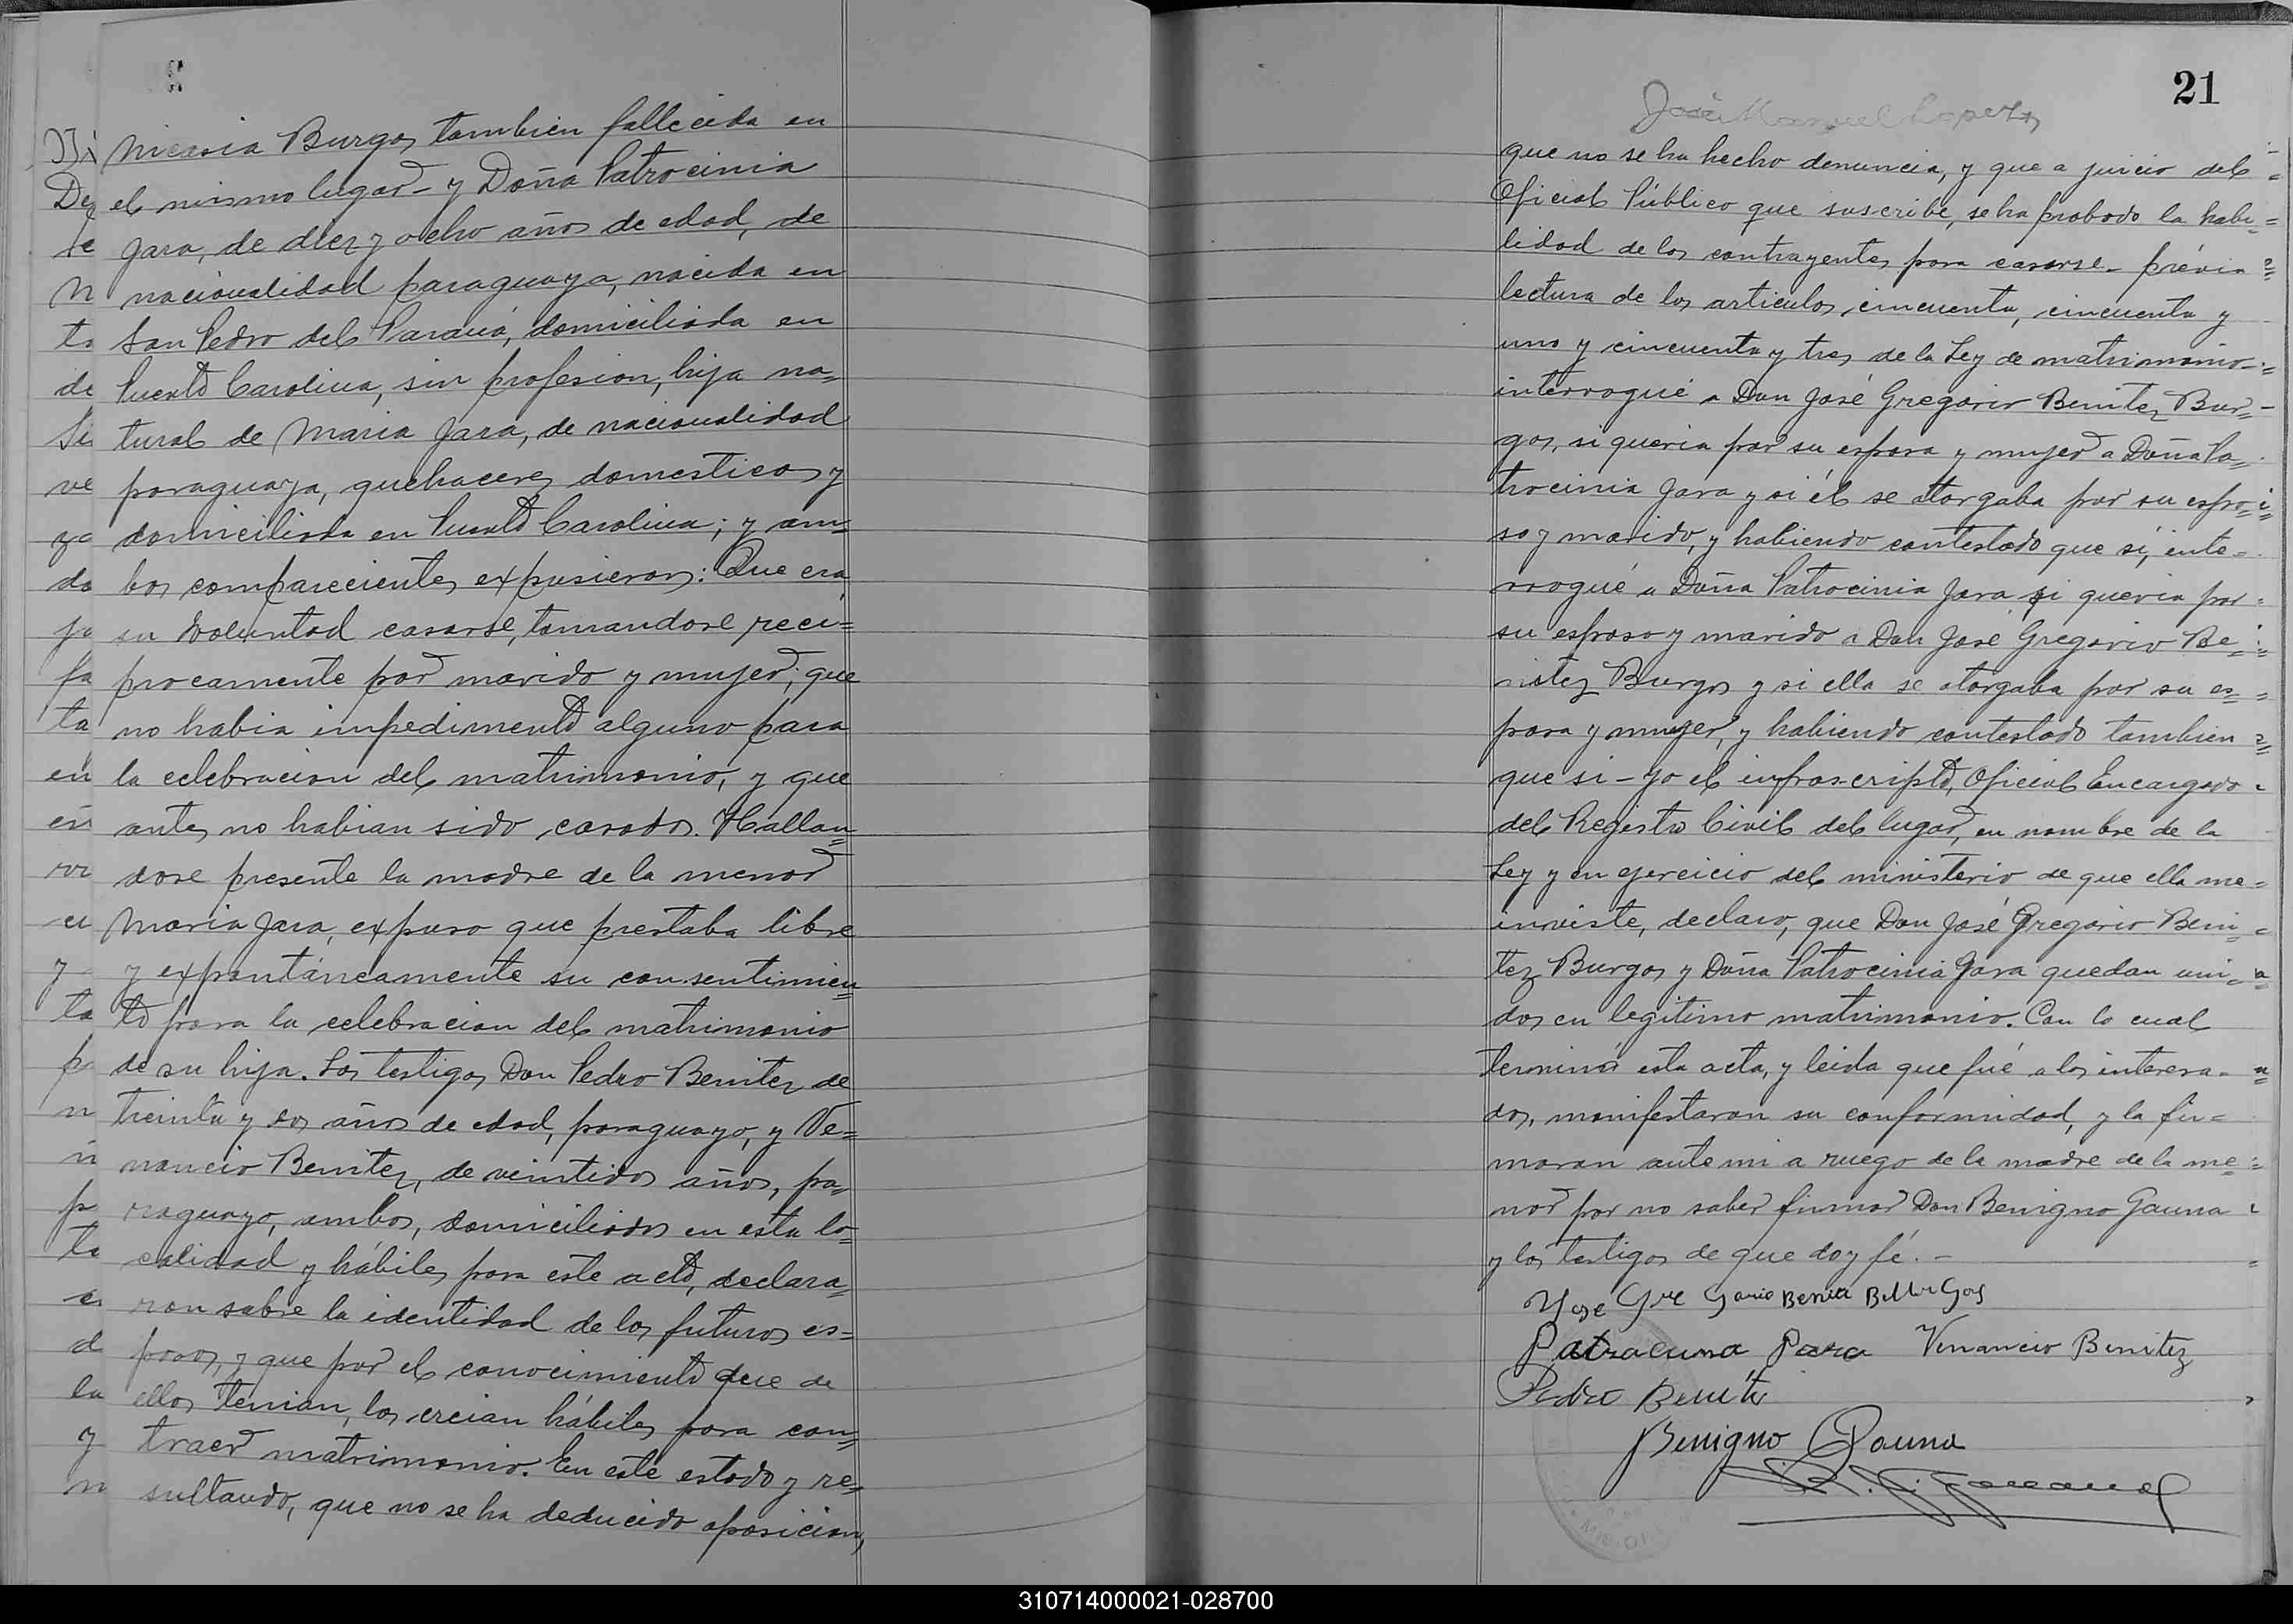 Nicasia Burgos tambien fallecida en
el mismo lugar - y Doña Patrocinia
Jara, de diez y ocho años de edad, de
nacionalidad paraguaya, nacida en
San Pedro del Paraná, domiciliada en
Puerto Carolina, sin profesion, hija na=
tural de Maria Jara, de nacionalidad
paraguaya, quehaceres domesticos y
domiciliada en Puerto Carolina; y am=
bos comparecientes expusieron: Que era
su voluntad casarse, tomandose reci=
procamente por marido y mujer; que
no habia impedimento alguno para
la celebracion del matrimonio, y que
antes no habian sido casados. Hallan=
dose presente la madre de la menor
Maria Jara, expuso que prestaba libre
y expontáneamente su consentimien=
to para la celebracion del matrimonio
de su hija. Los testigos Don Pedro Benitez de
treinta y dos años de edad, paraguayo, y Ve=
nancio Benitez, de veintidos años, pa=
raguayo, ambos, domiciliados en esta lo=
calidad y hábiles para este acto, declara=
ron sobre la identidad de los futuros es=
posos, y que por el conocimiento que de
ellos tenian, los creian hábiles para con=
traer matrimonio. En este estado y re=
sultando, que no se ha deducido oposicion,
21
José Manuel Lopez
que no se ha hecho denuncia, y que a juicio del
Oficial Público que suscribe, se ha probado la habi=
lidad de los contrayentes para casarse - prévia
lectura de los articulos, cincuenta, cincuenta y
uno y cincuenta y tres de la Ley de matrimonio -
interrogué a Don José Gregorio Benitez Bur=
gos, si queria por su esposa y mujer a Doña Pa=
trocinia Jara y si él se otorgaba por su espo=
so y marido, y habiendo contestado que sí, inte=
rrogué a Doña Patrocinia Jara si queria por
su esposo y marido a Don José Gregorio Be=
nitez Burgos y si ella se otorgaba por su es=
posa y mujer, y habiendo contestado tambien
que si - yo el infrascripto, Oficial Encargado
del Registro Civil del lugar, en nombre de la
Ley y en ejercicio del ministerio de que ella me
inviste, declaro, que Don José Gregorio Beni=
tez Burgos y Doña Patrocinia Jara quedan uni=
dos en legitimo matrimonio. Con lo cual
terminó esta acta, y leida que fué a los interesa=
dos, manifestaron su conformidad, y la fir=
maron ante mi a ruego de la madre de la me=
nor por no saber firmar Don Benigno Gauna
y los testigos de que doy fé. -
Jose Gregorio Benitez Burgos
Patrocinia Jara Venancio Benitez
Pedro Benitez
Benigno Gauna
310714000021-028700